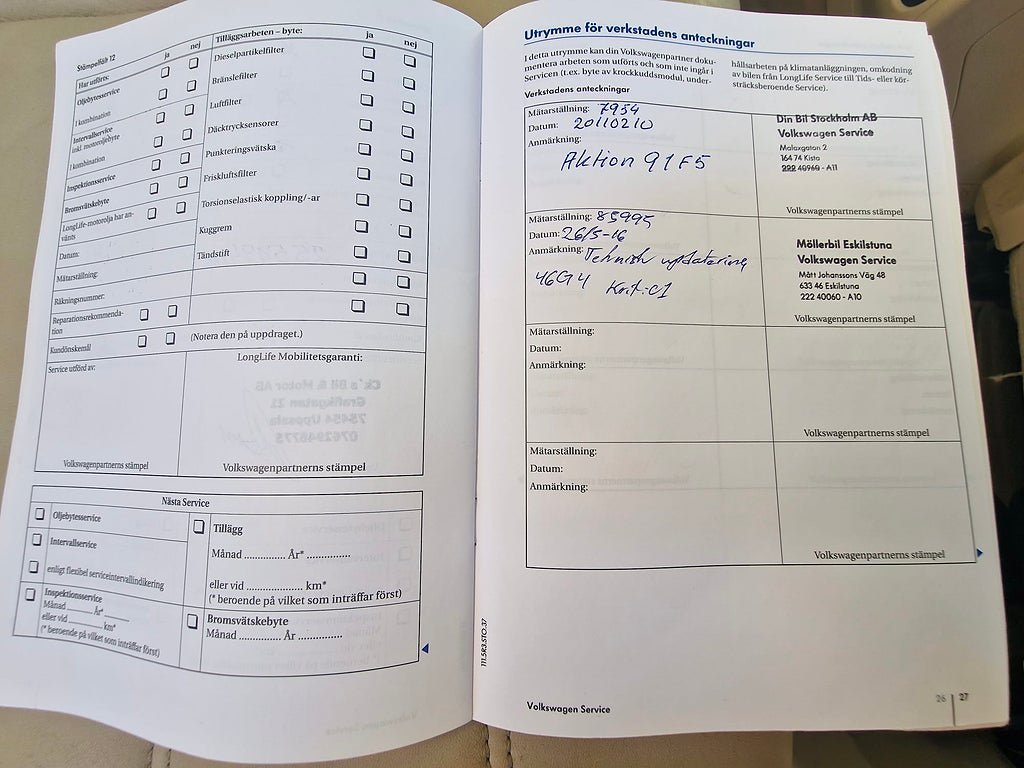 Stämpelfält 12
Har utförts: ja nej
Oljebytesservice
I kombination
Intervallservice
inkl. motoroljebyte
I kombination
Inspektionsservice
Bromsvätskebyte
LongLife-motorolja har an-
vänts
Datum:
Mätarställning:
Räkningsnummer:
Reparationsrekommenda-
tion
Kundönskemål
(Notera den på uppdraget.)
Tilläggsarbeten – byte: ja nej
Dieselpartikelfilter
Bränslefilter
Luftfilter
Däcktrycksensorer
Punkteringsvätska
Friskluftsfilter
Torsionselastisk koppling/-ar
Kuggrem
Tändstift
Service utförd av:
Volkswagenpartnerns stämpel
LongLife Mobilitetsgaranti:
Volkswagenpartnerns stämpel
Nästa Service
Oljebytesservice
Intervallservice
enligt flexibel serviceintervallindikering
Inspektionsservice
Månad ......... År* .........
eller vid ................ km*
(* beroende på vilket som inträffar först)
Tillägg
Månad .............. År* ...............
eller vid ................... km*
(* beroende på vilket som inträffar först)
Bromsvätskebyte
Månad .............. År ...............
Utrymme för verkstadens anteckningar
I detta utrymme kan din Volkswagenpartner doku-
mentera arbeten som utförts och som inte ingår i
Servicen (t.ex. byte av krockkuddsmodul, under-
hållsarbeten på klimatanläggningen, omkodning
av bilen från LongLife Service till Tids- eller kör-
sträcksberoende Service).
Verkstadens anteckningar
Mätarställning: 7954
Datum: 20110210
Anmärkning:
Aktion 91F5
Din Bil Stockholm AB
Volkswagen Service
Malaxgatan 2
164 74 Kista
222 40960 - A11
Volkswagenpartnerns stämpel
Mätarställning: 85995
Datum: 26/5-16
Anmärkning: Teknisk uppdatering
46G4 Krit:01
Möllerbil Eskilstuna
Volkswagen Service
Mått Johanssons Väg 48
633 46 Eskilstuna
222 40060 - A10
Volkswagenpartnerns stämpel
Mätarställning:
Datum:
Anmärkning:
Volkswagenpartnerns stämpel
Mätarställning:
Datum:
Anmärkning:
Volkswagenpartnerns stämpel
111.5R3.STO.37
Volkswagen Service
26 27